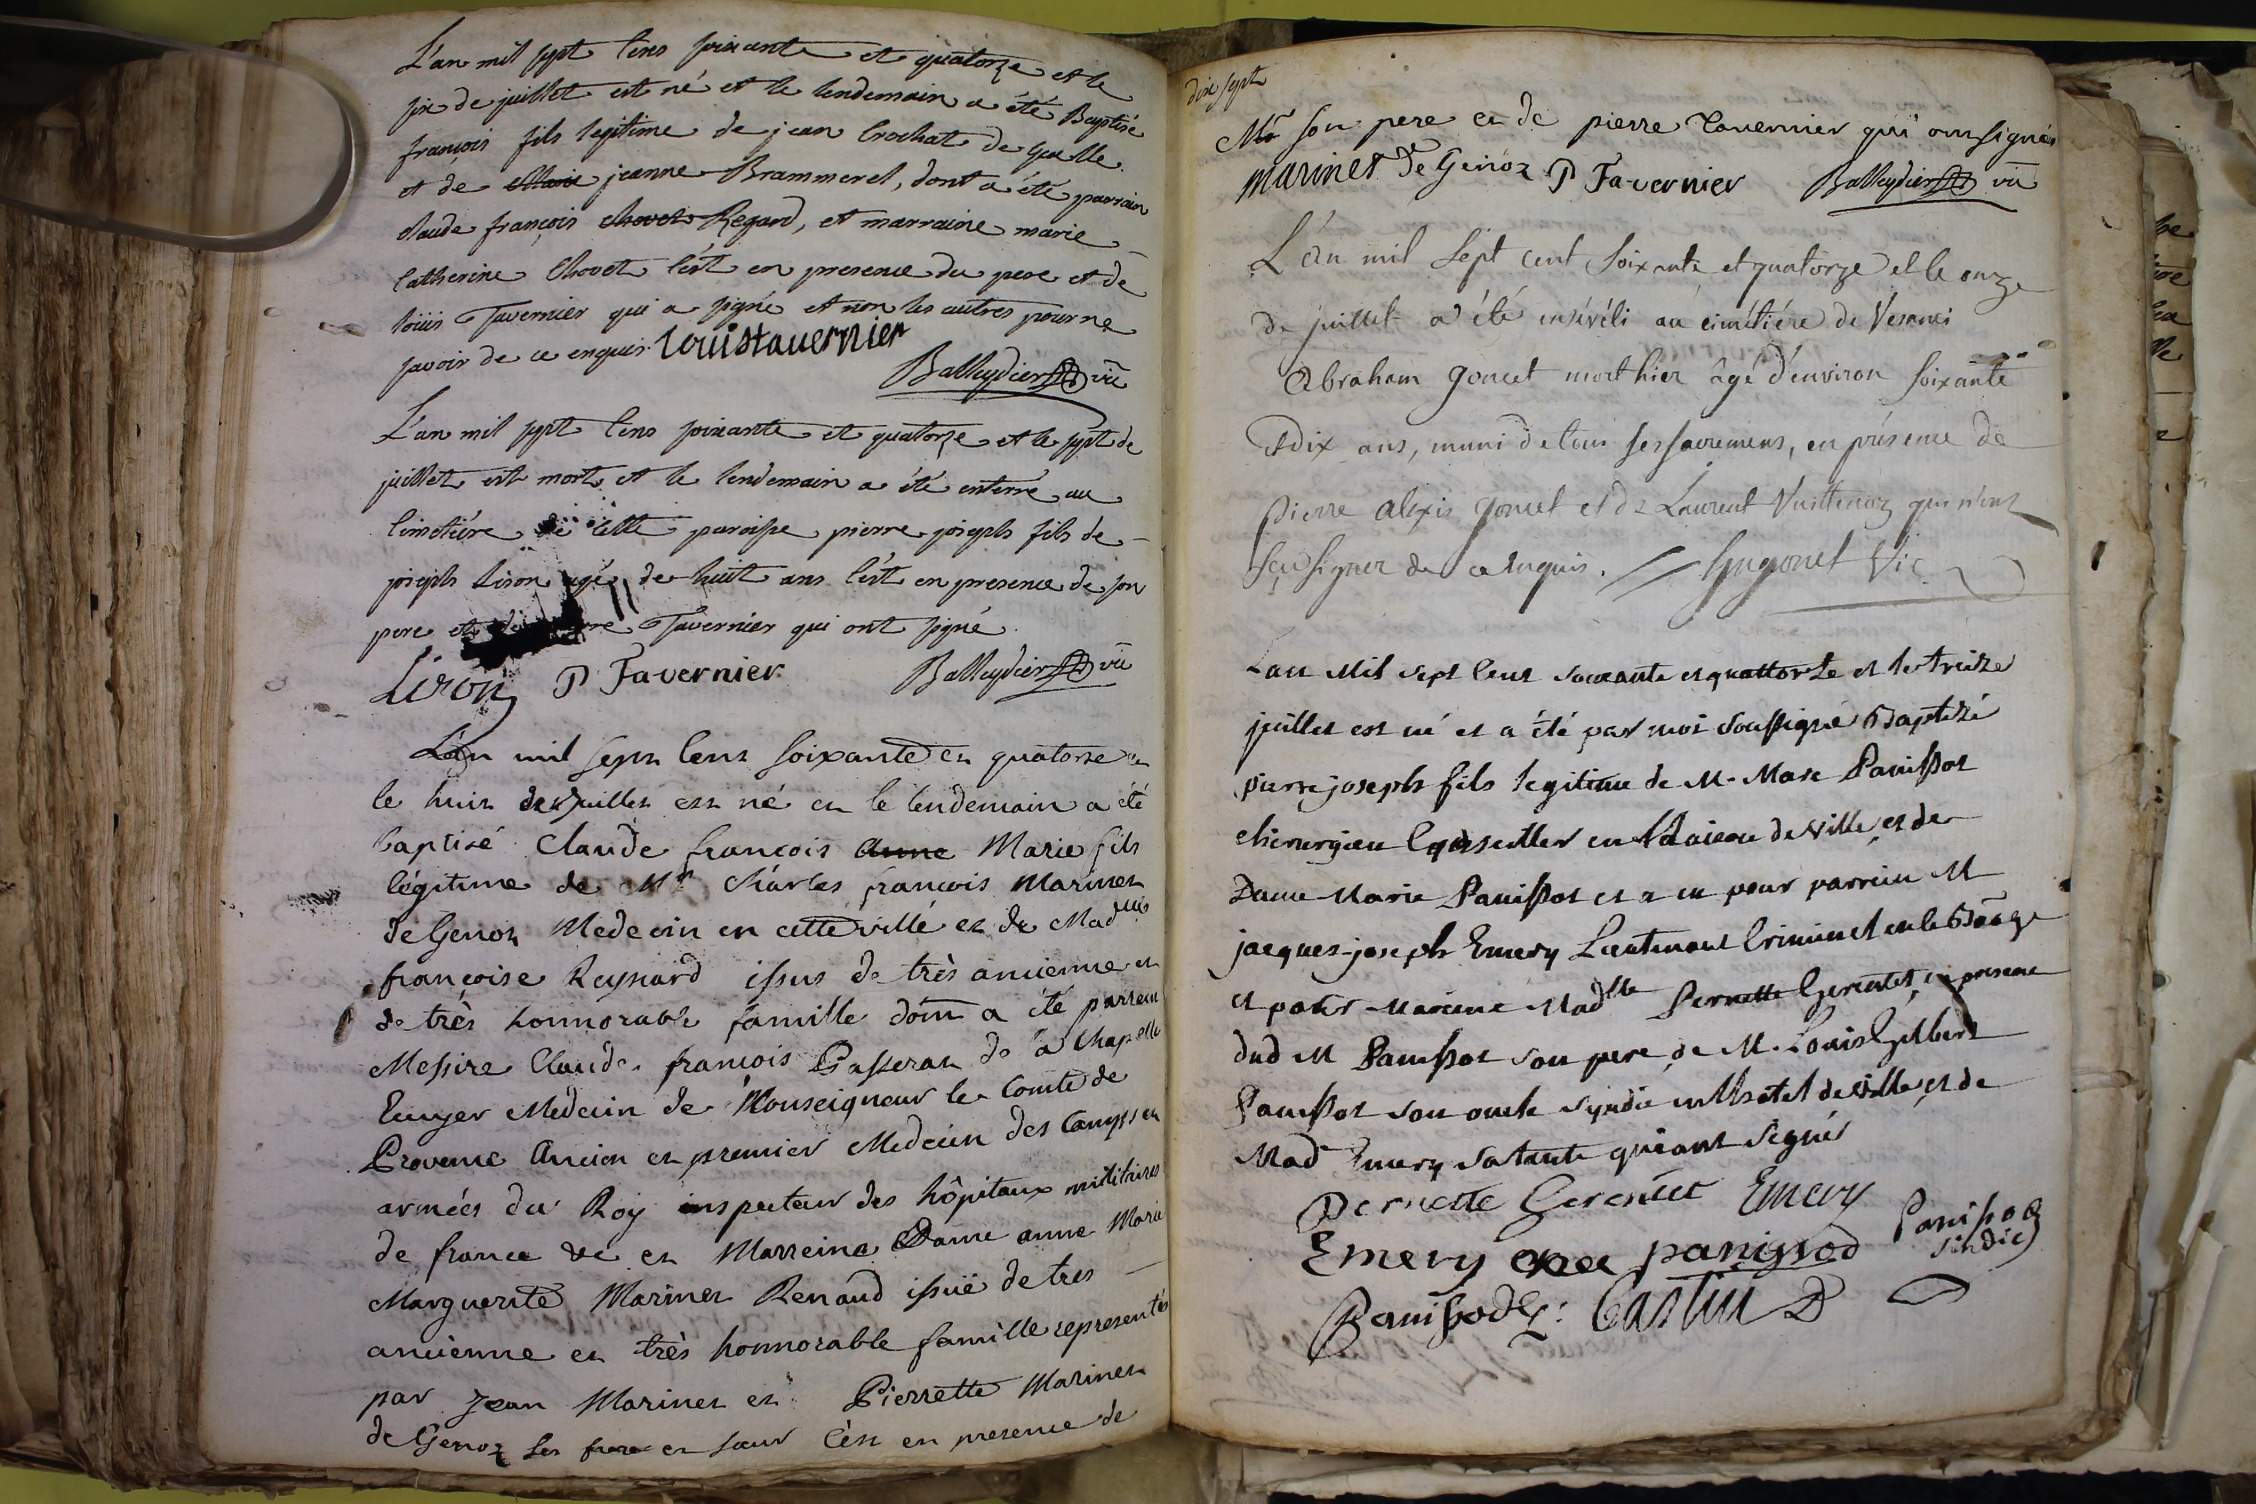 L'an mil sept cens soixante et quatorze et le
six de juillet est né et le lendemain a été Baptisé
françois fils legitime de jean Crochat de Gralle
et de Marie jeanne Brammerel, dont a été parrain
claude françois Chovet Regard, et marraine marie
Catherine Chovet c'est en presence du pere et de
loüis Tavernier qui a signé et non les autres pour ne
savoir de ce enquis. Louis tauernier
Balleydier vic
L'an mil sept cens soixante et quatorze et le sept de
juillet est mort et le lendemain a été enterré au
Cimetière de cette paroisse pierre joseph fils de
joseph Liron agé de huit ans c'est en presence de son
pere et de pierre Tavernier qui ont signé
Liron P Tavernier Balleydier vic
L'an mil sept cens soixante et quatorze et
le huit de juillet est né et le lendemain a été
baptisé Claude françois Anne Marie fils
légitime de Mr Charles françois Marinet
de Genoz Medecin en cette ville et de Mad
françoise Reynard issus de très ancienne et
de très honnorable famille dont a été parrein
Messire Claude françois Passerat de la Chapelle
Ecuyer Medecin de Monseigneur le Comte de
Provence Ancien et premier Medecin des Camps et
armées du Roy inspecteur des hôpitaux militaires
de france &c et Marreine Dame anne Marie
Marguerite Marinet Renaud issuë de tres
ancienne et très honnorable famille representés
par Jean Marinet et Pierrette Marinet
de Genoz ses frere et sœur c'est en presence de
dix sept
Mr son pere et de pierre Tavernier qui ont signés
Marinet de Genoz P Tavernier Balleydier vic
L'an mil Sept cent soixante et quatorze et le onze
de juillet a été enséveli au cimétiére de Vesanci
Abraham Goncet mort hier âgé d'environ soixante
et dix ans, muni de tous ses sacremens, en présence de
Pierre Alexis Goncet et de Laurent Vuittenoz qui n'ont
sçu signer de ce enquis. Gugonet Vic
L'an Mil sept Cent soixante et quattorze et le treize
juillet est né et a été par moi soussigné Baptizé
pierre joseph fils legitime de M. Marc Panissot
chirurgien Conseiller en l'Maison de Ville, et de
Dame Marie Panissot et a eu pour parrein M
jacques-joseph Emery Lieutenant Criminel en le Bâage
et pour mareine Madlle Pernette Gerentet, en presence
dud M Panissot son pere, de M. Louis Gilbert
Panissot son oncle syndic en l'hotel de ville, et de
Mad Emery sa tante qui ont signés
Pernette Gerentet Emery
Emery née panissod Panissod
sindic
Panissod Castin